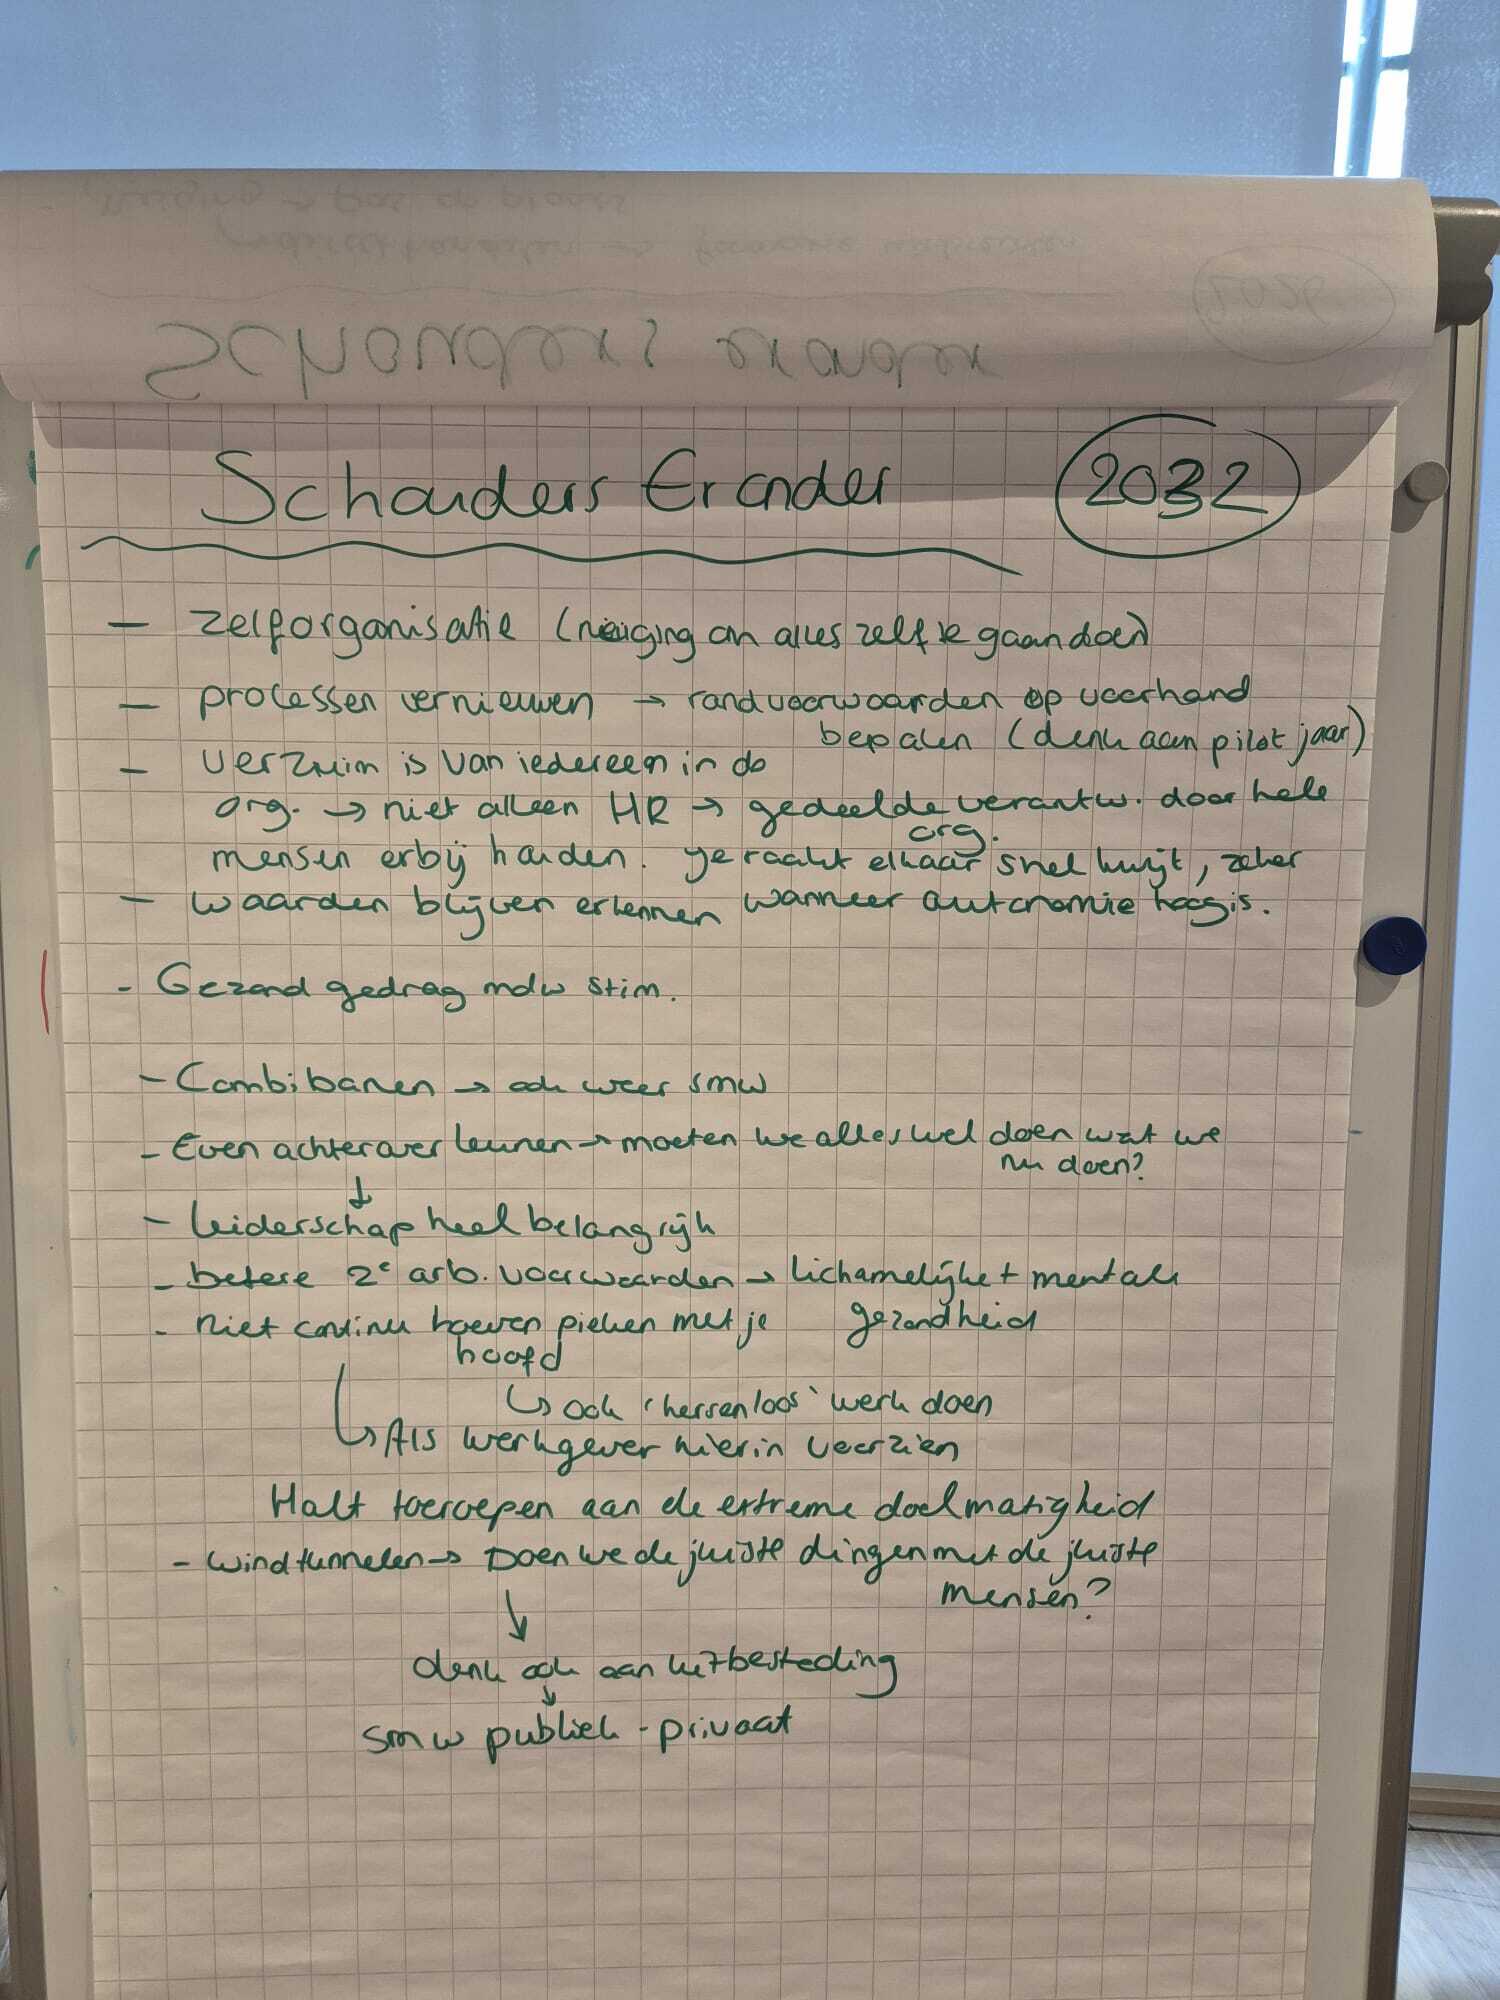 Schouders eronder
Schouders Eronder 2032
- zelforganisatie (neiging om alles zelf te gaan doen)
- processen vernieuwen → randvoorwaarden op voorhand
bepalen (denk aan pilot jaar)
- verzuim is van iedereen in de
org. → niet alleen HR → gedeelde verantw. door hele
org.
mensen erbij houden. Je raakt elkaar snel kwijt, zeker
- waarden blijven erkennen wanneer autonomie hoog is.
- Gezond gedrag mdw stim.
- Combibanen → ook weer smw
- Even achterover leunen → moeten we alles wel doen wat we
nu doen?
↓
- leiderschap heel belangrijk
- betere 2e arb. voorwaarden → lichamelijke + mentale
- niet continu hoeven pieken met je gezondheid
hoofd
↳ ook 'hersenloos' werk doen
↳ Als werkgever hierin voorzien
Halt toeroepen aan de extreme doelmatigheid
- windtunnelen → Doen we de juiste dingen met de juiste
mensen?
↓
denk ook aan uitbesteding
↓
smw publiek - privaat